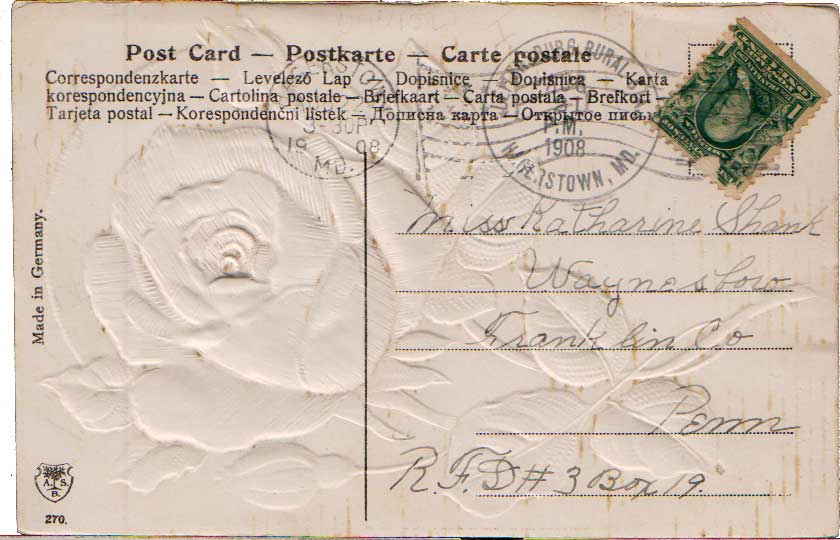 Post Card — Postkarte — Carte postale
Correspondenzkarte — Levelező Lap — Dopisnice — Dopisnica — Karta
korespondencyjna — Cartolina postale — Briefkaart — Carta postala — Brefkort —
Tarjeta postal — Korespondenční listek — Дописна карта — Открытое
3-30P
19 08
MD.
BURG RURAL
P.M.
1908
HAGERSTOWN, MD.
Miss Katharine Shank
Waynesboro
Franklin Co
Penn
R.F.D # 3 Box 19.
Made in Germany.
A. S.
B.
270.